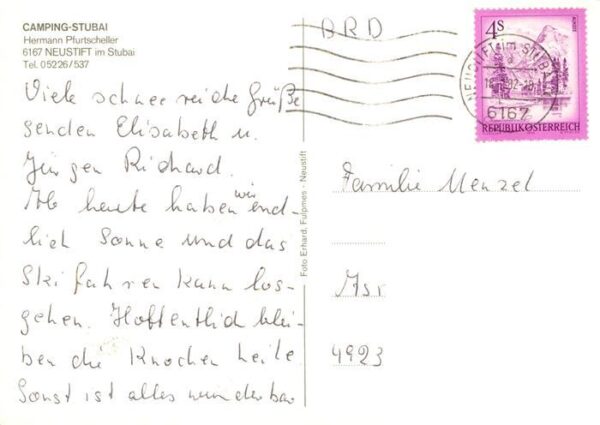 CAMPING-STUBAI
Hermann Pfurtscheller
6167 NEUSTIFT im Stubai
Tel. 05226/537
Viele schneereiche Grüße
senden Elisabeth u.
Jürgen Richard.
Ab heute haben wir end-
lich Sonne und das
Skifahren kann los-
gehen. Hoffentlich blei-
ben die Knochen heile
Sonst ist alles wunderbar
Foto Erhard, Fulpmes - Neustift
BRD
4S
REPUBLIK ÖSTERREICH
NEUSTIFT im STUB
6167
Familie Menzel
4923